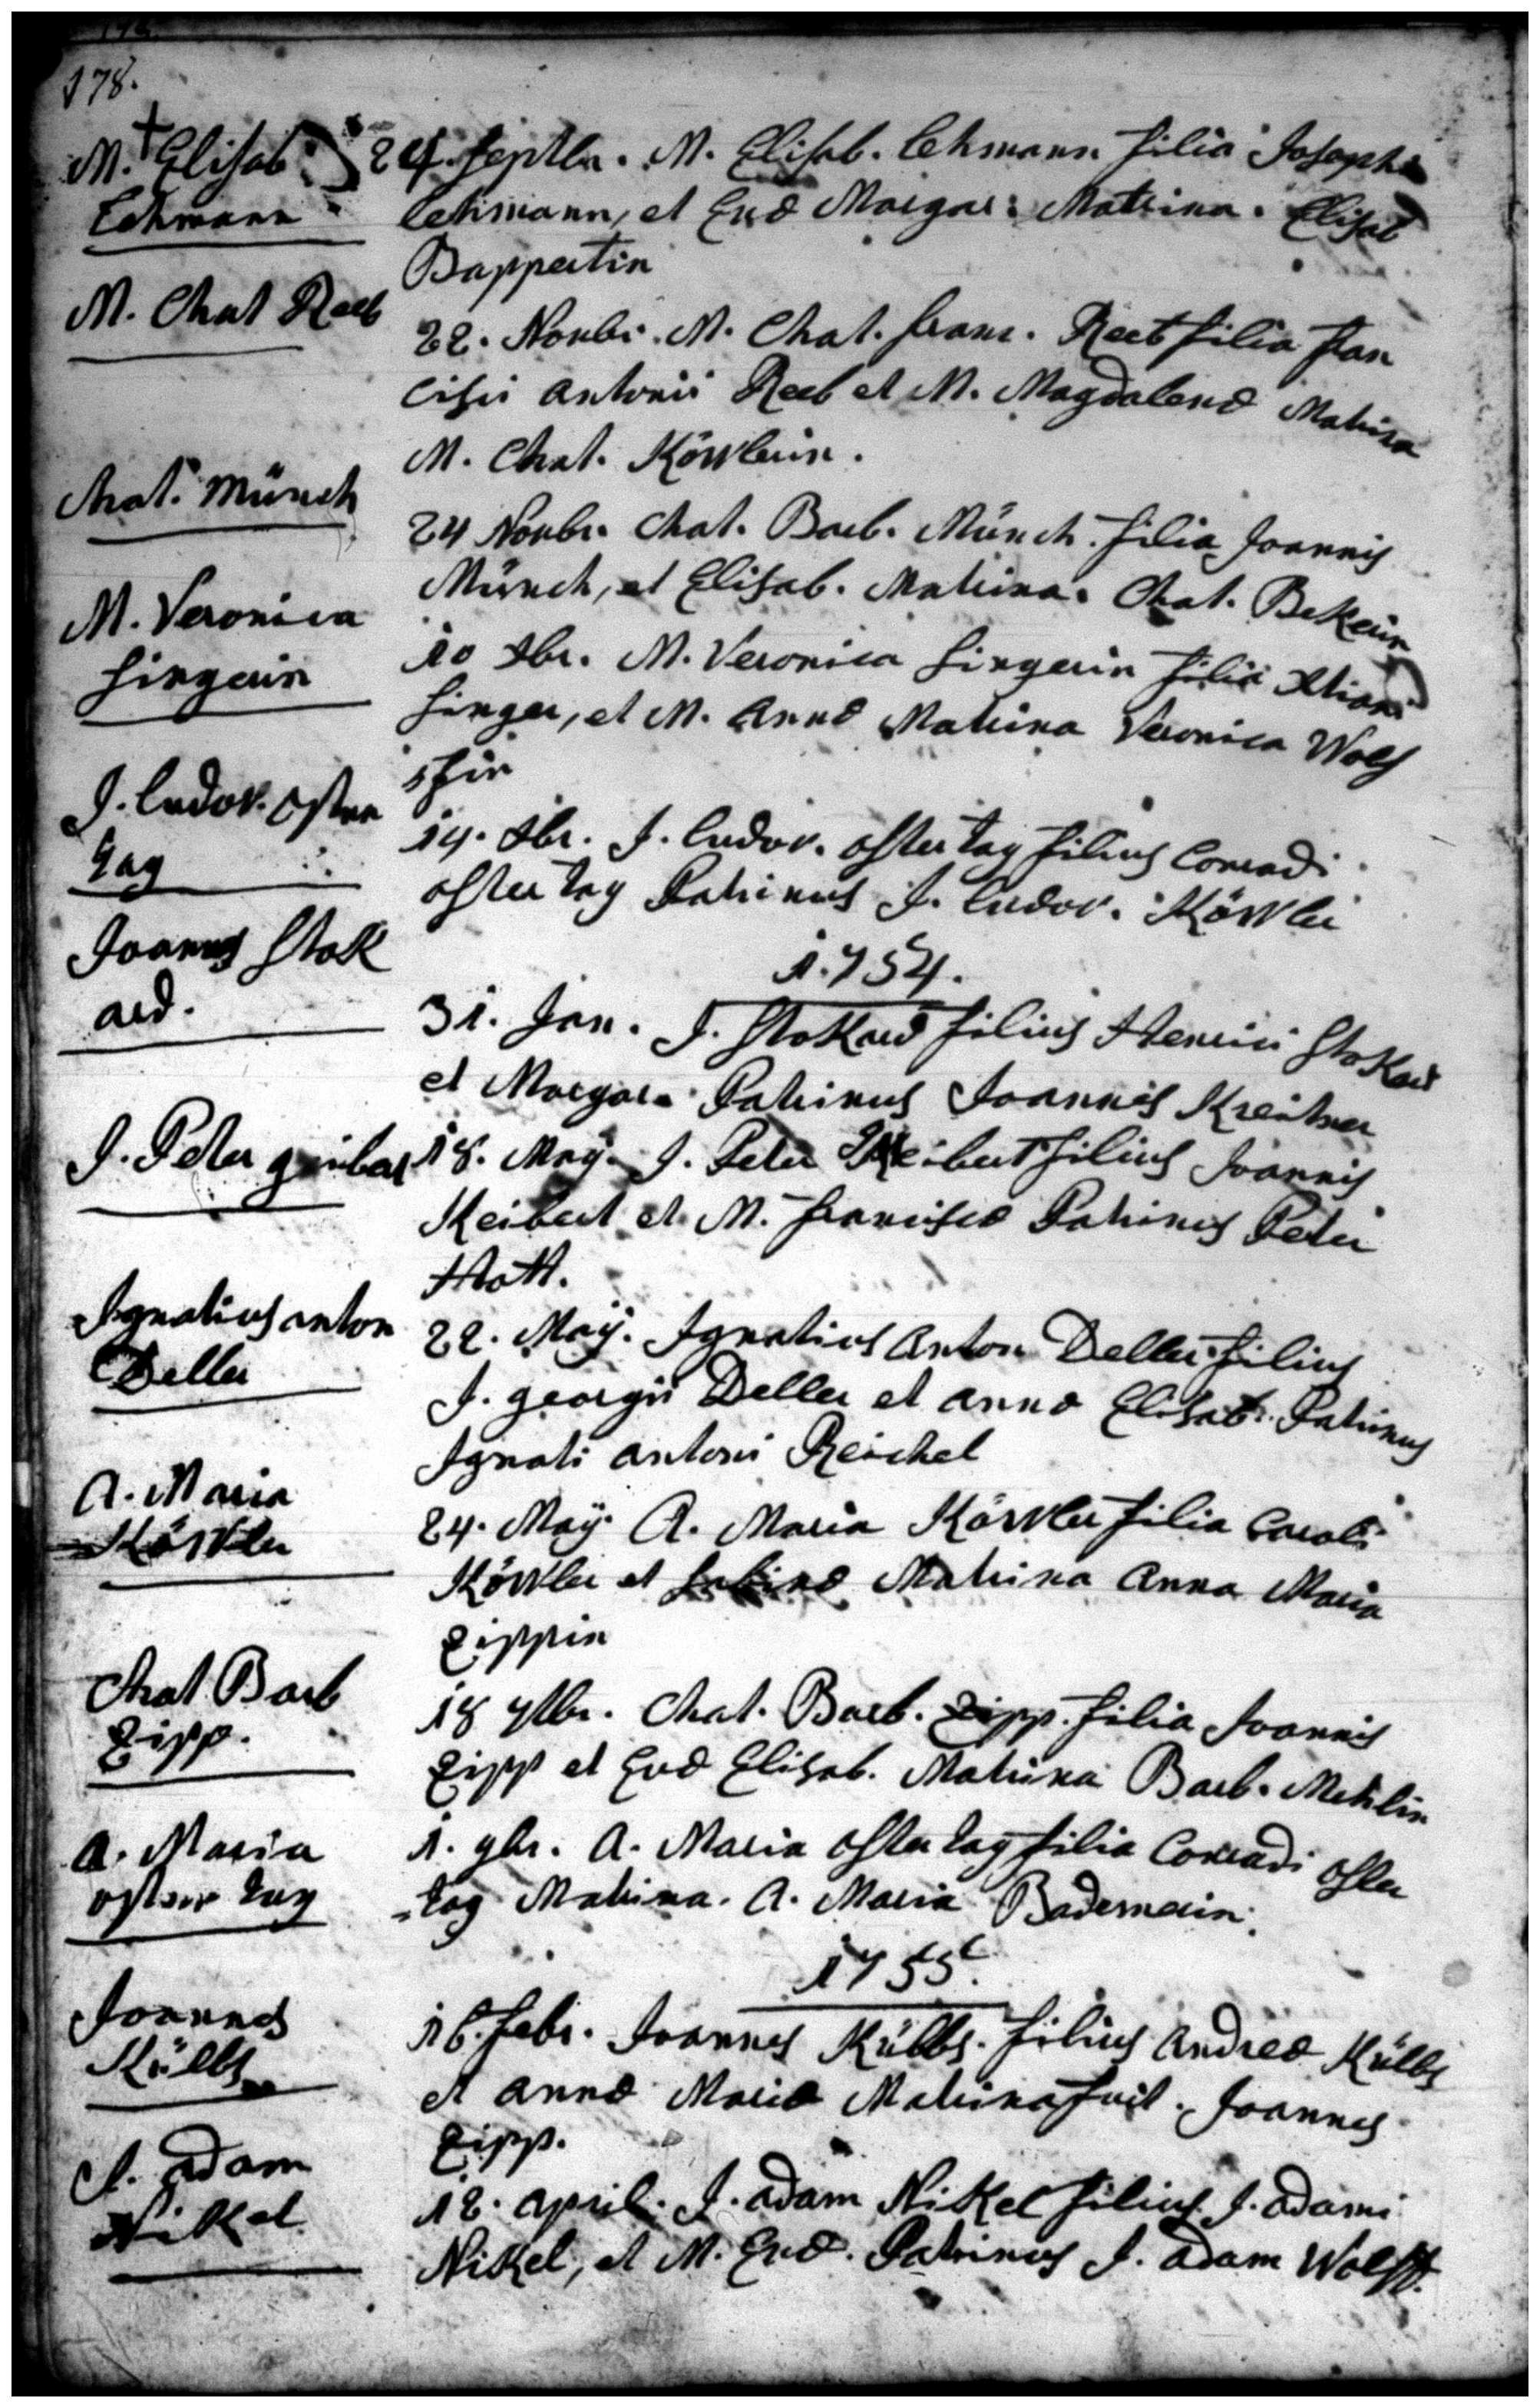 178.
M. Elisab.
Lehmann
24. Septbr. M. Elisab. Lehmann filia Josephi
Lehmann, et Evæ Margar. Matrina. Elisab
Bappertin
M. Chat Reeb
22. Novbr. M. Chat. franc. Reeb filia fran
cisci Antonii Reeb et M. Magdalenæ Matrina
M. Chat. Körvlerin.
Chat. Münch
24 Novbr. Chat. Barb. Münch filia Joannis
Münch, et Elisab. Matrina. Chat. Bekerin
M. Veronica
singerin
10 xbr. M. Veronica singerin filia
singer, et M. Annæ Matrina Veronica Wolf
sin
J. ludov. oster
tag
19. xbr. J. ludov. oster tag filius Conradi
oster tag Patrinus J. ludov. Körvler
1754.
Joannes Stok
ard.
31. Jan. J. Stokard filius Henrici Stokard
et Margar. Patrinus Joannes Kreitner
J. Peter
18. May. J. Peter Keibert filius Joannis
Keibert et M. franciscæ Patrinus Peter
Hott.
Ignatius anton
Deller
22. May. Ignatius Anton Deller filius
J. georgii Deller et annæ Elisab. Patrinus
Ignati antoni Reichel
A. Maria
Körvler
24. May. A. Maria Körvler filia Caroli
Körvler et Sabinæ Matrina Anna Maria
Zippin
Chat Barb
Zipp.
18 7tbr. Chat. Barb. Zipp. filia Joannis
Zipp et Evæ Elisab. Matrina Barb. Mehlin
A. Maria
oster tag
1. 9br. A. Maria oster tag filia Conradi oster
tag Matrina. A. Maria Bademerin.
1755.
Joannes
Külbs
16. febr. Joannes Külbs. filius Andreæ Külbs
et annæ Mariæ Matrina fuit. Joannes
Zipp.
J. adam
Nikel
12. april. J. adam Nikel filius J. adami
Nikel, et M. Evæ. Patrinus J. adam Wolff.